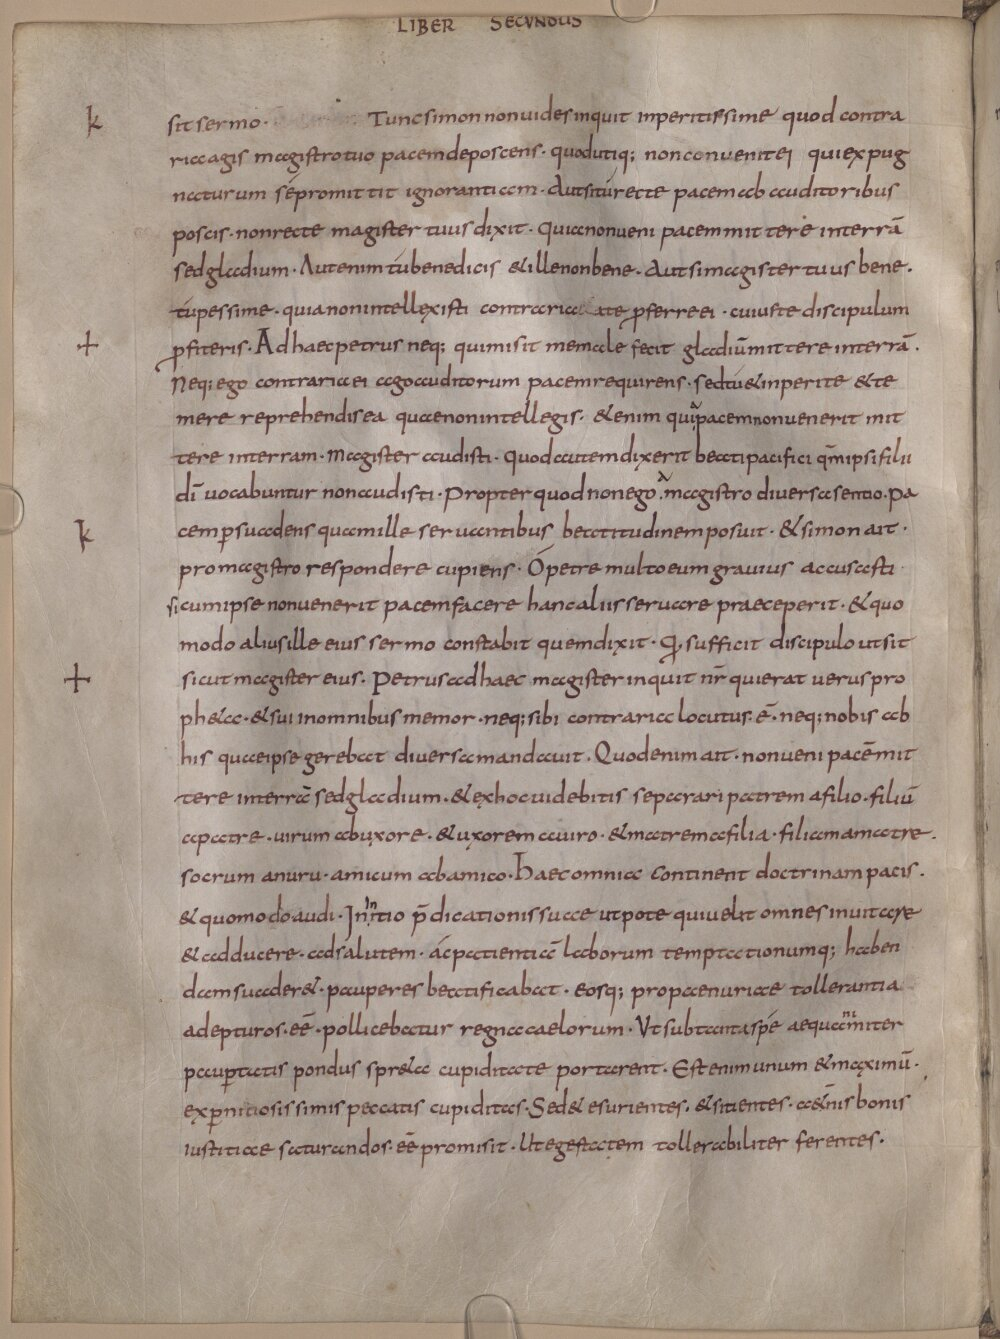 LIBER SECVNDUS
k
sit sermo. Tunc simon non uides inquit inperitissime quod contra
ria agis magistro tuo pacem deposcens. quod utiq; non conuenit ei qui expug
naturum se promittit ignorantiam. Aut si tú recte pacem ab auditoribus
poscis. non recte magister tuus dixit. quia non ueni pacem mittere in terrā
sed gladium. Aut enim tú benedicis & ille non bene. Aut si magister tuus bene.
tú pessime. quia non intellexisti contraria te p̄ferre ei. cui uste discipulum
+
p̄fiteris. Ad haec petrus neq; qui misit me male fecit gladiū mittere in terrā.
Neq; ego contraria ei ago auditorum pacem requirens. sed tú & inperite & te
mere reprehendis ea quae non intellegis. & enim quia pacem non uenerit mit
tere in terram. magister audisti. Quod autem dixerit beati pacifici qm̄ ipsi filii
dī uocabuntur non audisti. Propter quod non ego a magistro diuersa sentio. Pa
k
cem p̄suadens quam ille seruantibus beatitudinem posuit. & simon ait.
pro magistro respondere cupiens. Ó petre multo eum grauius accusasti
si cum ipse non uenerit pacem facere hanc aliis seruare praeceperit. & quo
modo alius ille eius sermo constabit quem dixit. Q, sufficit discipulo ut sit
+
sicut magister eius. Petrus ad haec magister inquit nr̄ qui erat uerus pro
ph&a. & sui in omnibus memor. neq; sibi contraria locutus. ē. neq; nobis ab
his quae ipse gerebat diuersa mandauit. Quod enim ait. non ueni pacē mit
tere in terrā sed gladium. & ex hoc uidebitis separari patrem a filio. filiū
a patre. uirum ab uxore. & uxorem a uiro. & matrem a filia. filiam a matre.
socrum a nuru. amicum ab amico. haec omnia continent doctrinam pacis.
& quomodo audi. In initio p̄dicationis suae utpote qui uelit omnes inuitare
& adducere. ad salutem. ác patientiā laborum temptationumq; haben
dam suader&. pauperes beatificabat. eosq; pro paenuriae tollerantia
adepturos. eē. pollicebatur regna caelorum. Vt sub tanta spé aequanimiter
paup̄tatis pondus spr&a cupiditate portarent. Est enim unum & maximū.
ex p̄nitiosissimis peccatis cupiditas. Sed & esurientes. & sitientes. a&n̄is bonis
iustitiae saturandos. eē promisit. Ut egestatem tollerabiliter ferentes.